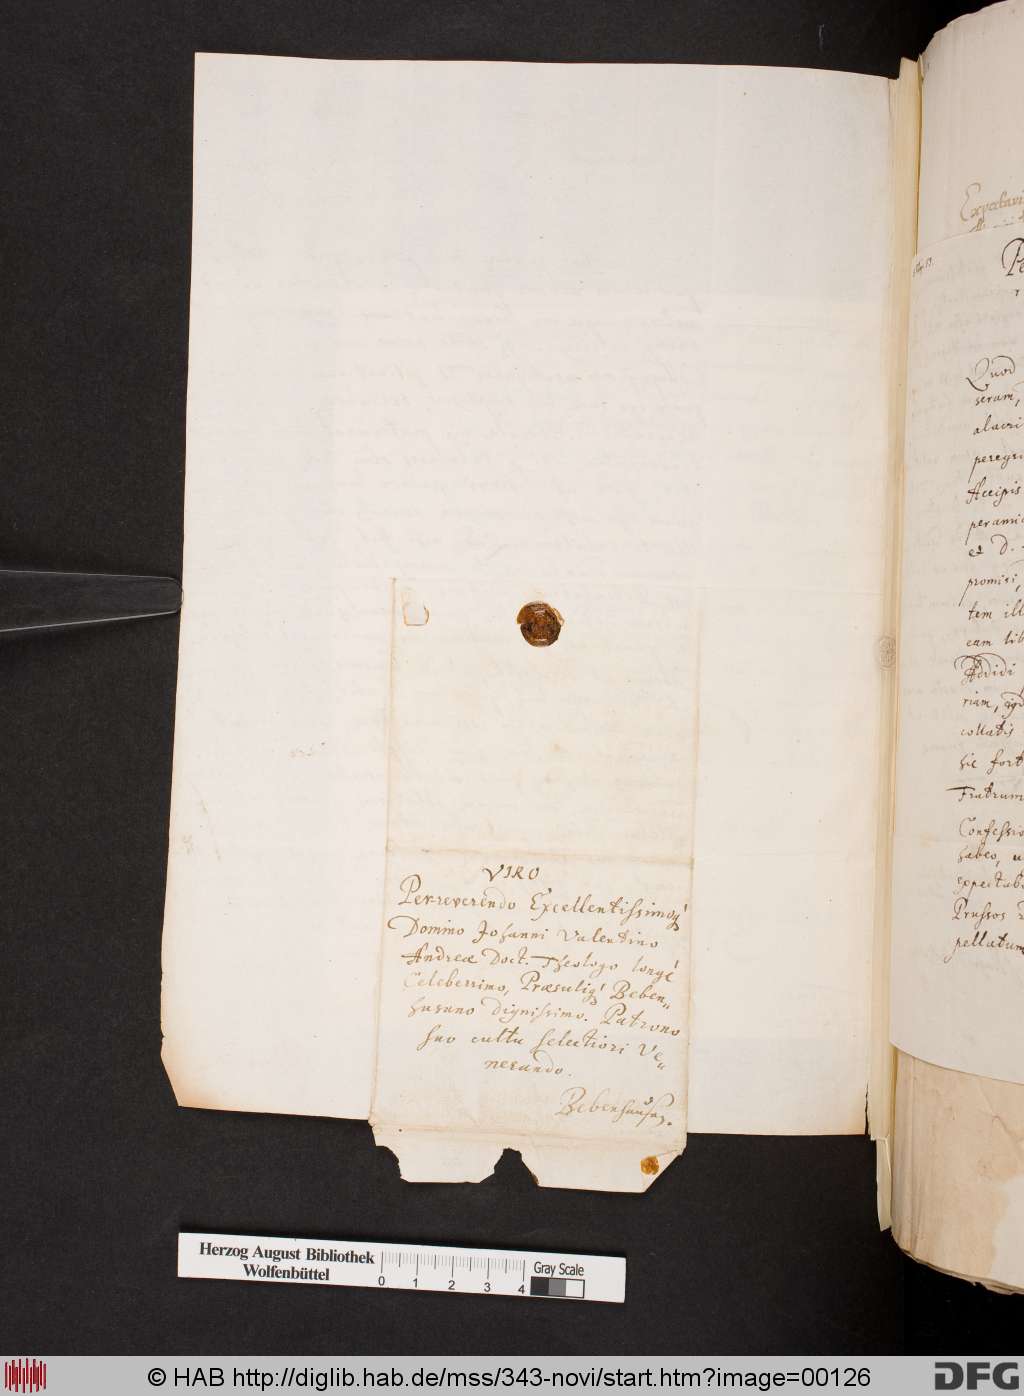 VIRO
Perreverendo Excellentissimoq́
Domino Johanni Valentino
Andreæ Doct. Theologo longè
Celeberrimo, Præsuliq́ Beben„
husano dignissimo. Patrono
suo cultu selectiori Ve„
nerando.
Bebenhausen.
Quod
serum,
alacri
peregri
Accipis
peramic
et D.
promisi,
tem ill
eam lib
Addidi
riam,
collatis
hic fort
Fratrum
Confessio
habeo, u
expectab
Prussos
pellatum
Herzog August Bibliothek
Wolfenbüttel
0 1 2 3 4
Gray Scale
© HAB http://diglib.hab.de/mss/343-novi/start.htm?image=00126
DFG